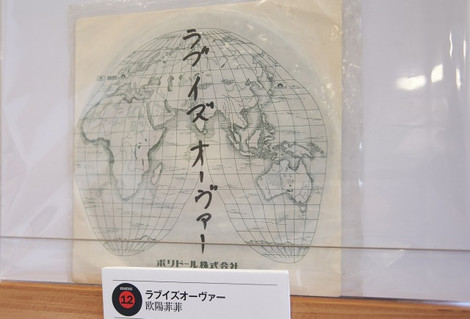 ラブイズオーヴァー
ポリドール株式会社
12
ラブイズオーヴァー
欧陽菲菲